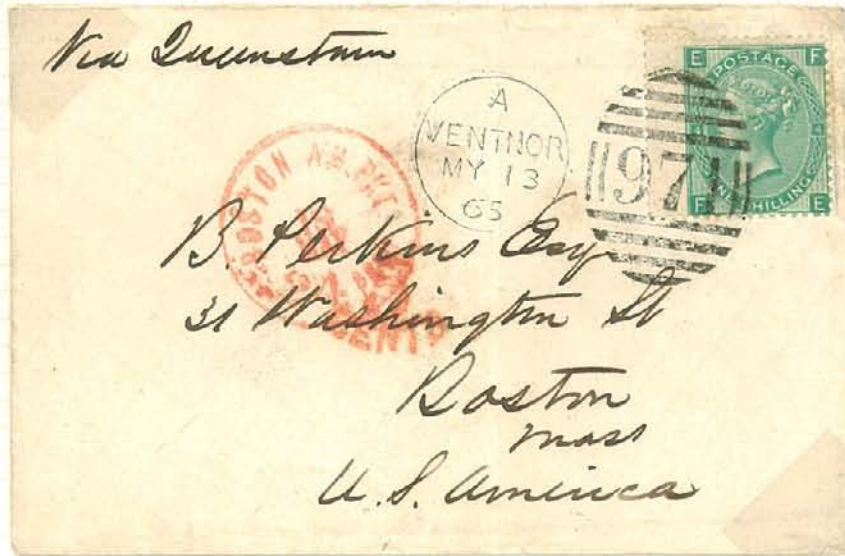 Via Queenstown
A
VENTNOR
MY 13
65
971
E F
POSTAGE
ONE SHILLING
F E
BOSTON
B. Perkins Esq
31 Washington St
Boston
Mass
U.S. America